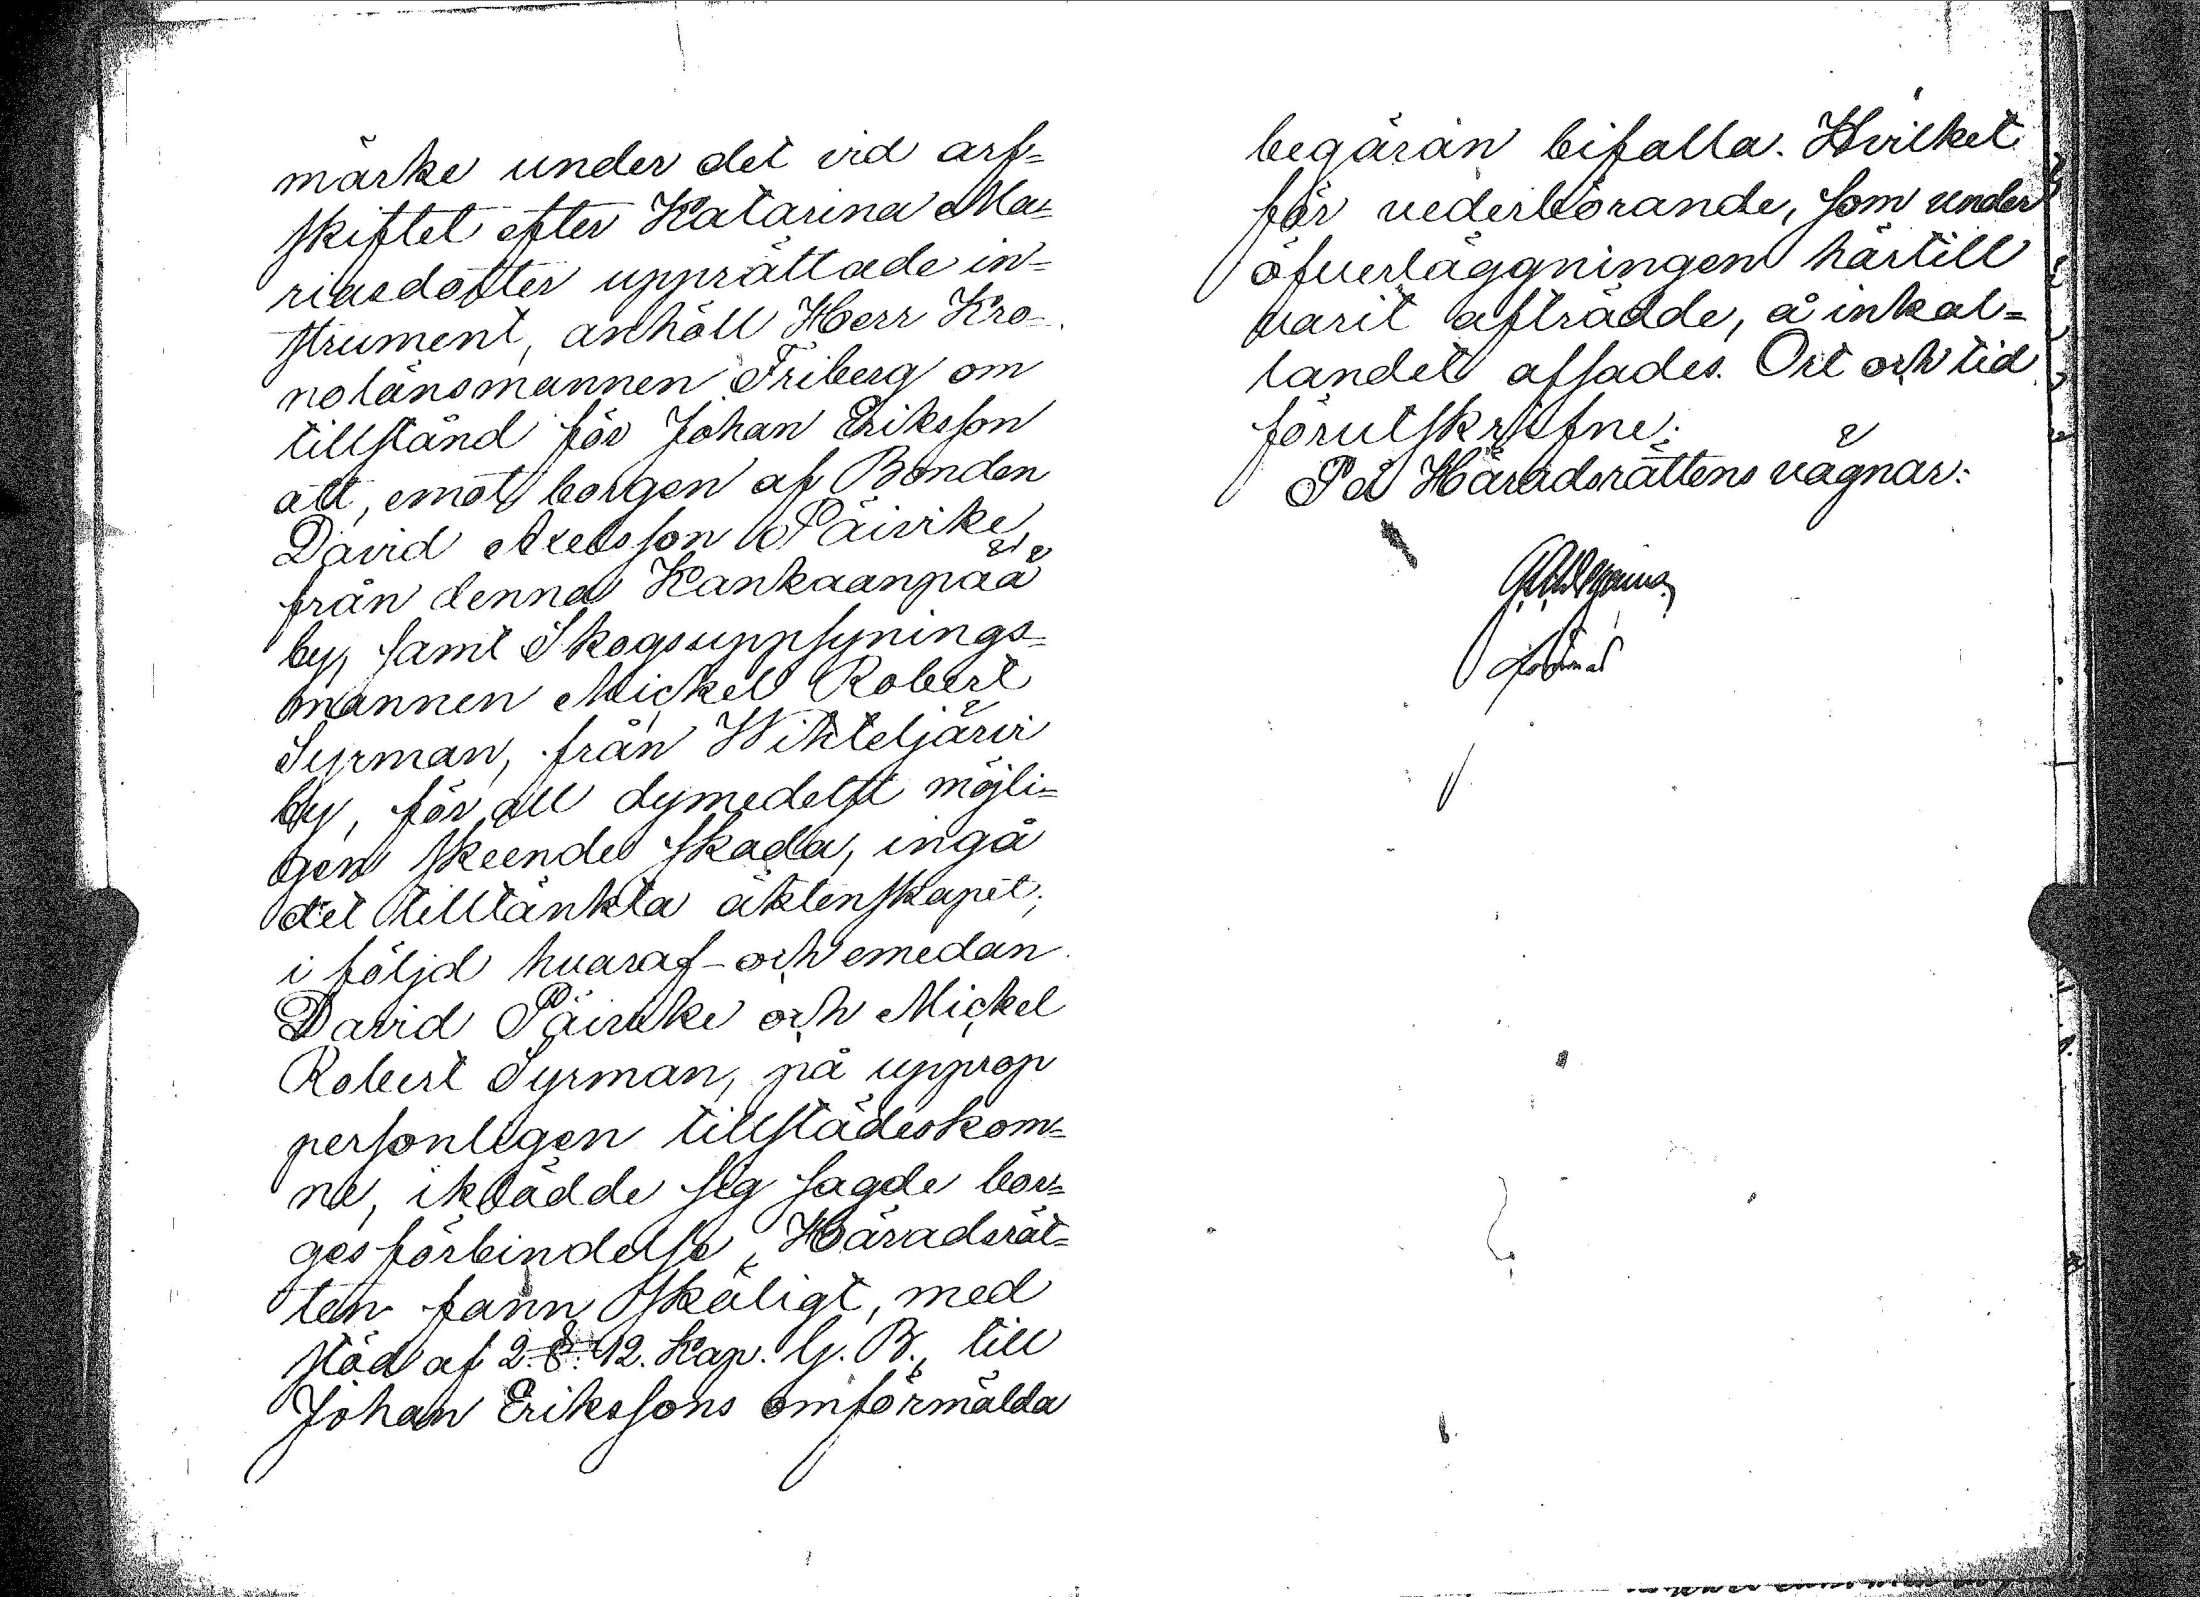 märke under det vid arf=
skiftet efter Katarina Ma=
riasdotter upprättade in=
strument, anhöll Herr Kro=
nolänsmannen Friberg om
tillstånd för Johan Eriksson
att, emot borgen af Bonden
David Axelsson Päivike,
från denna Kankaanpää
by, samt Skogsuppsynings=
mannen Mickel Robert
Syrman, från Wihteljärvi
by, för all dymedelst möjli=
gen skeende skada, ingå
det tilltänkta äktenskapet;
i följd hvaraf och emedan
David Päivike och Mickel
Robert Syrman, på upprop
personligen tillstädeskom=
ne, iklädde sig sagde bor=
gesförbindelse, Häradsrät=
ten fann skäligt, med
stöd af 2. §. 12. Kap. G. B., till
Johan Erikssons omförmälda
begäran bifalla. Hvilket
för vederbörande, som under
öfverläggningen härtill
varit afträdde, å inkal=
landet afsades. Ort och tid
förutskrifne.
På Häradsrättens vägnar: